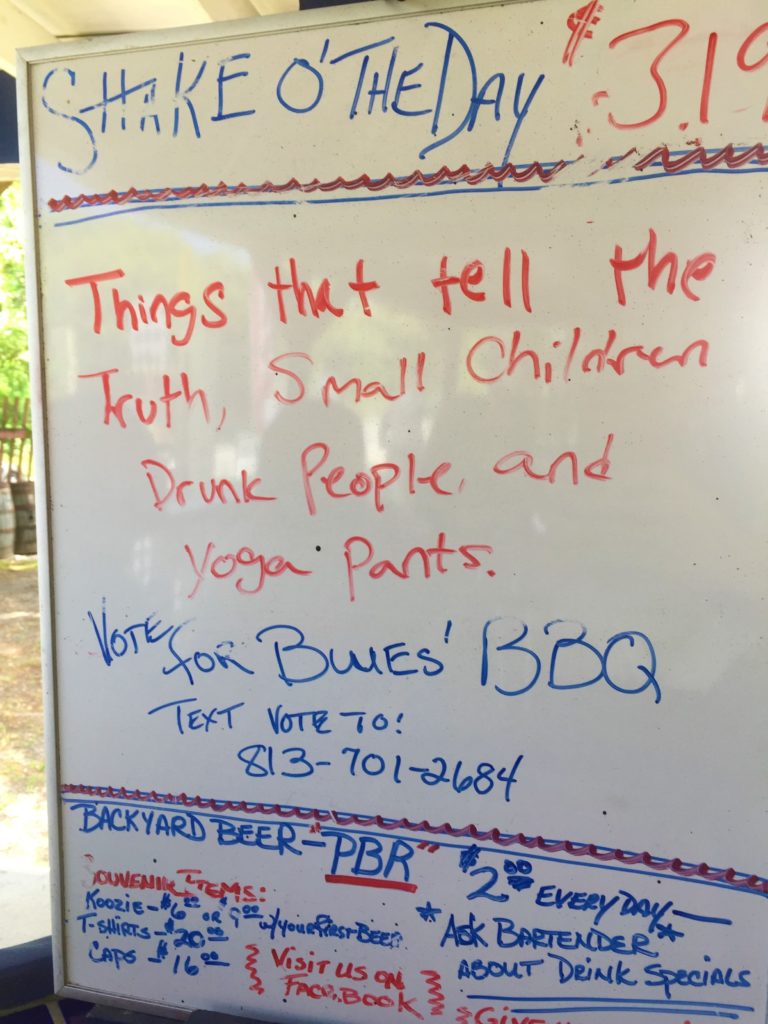 SHAKE O' THE DAY $3.19
Things that tell the
Truth, Small Children
Drunk People, and
Yoga Pants.
VOTE FOR BLUES' BBQ
TEXT VOTE TO:
813-701-2684
BACKYARD BEER - "PBR" $2.00 EVERYDAY
SOUVENIR ITEMS:
KOOZIE - $6.00 OR 9.00 w/YOUR FIRST BEER
T-SHIRTS - $20.00
CAPS - $16.00
VISIT US ON
FACEBOOK
*ASK BARTENDER*
ABOUT DRINK SPECIALS
GIVE